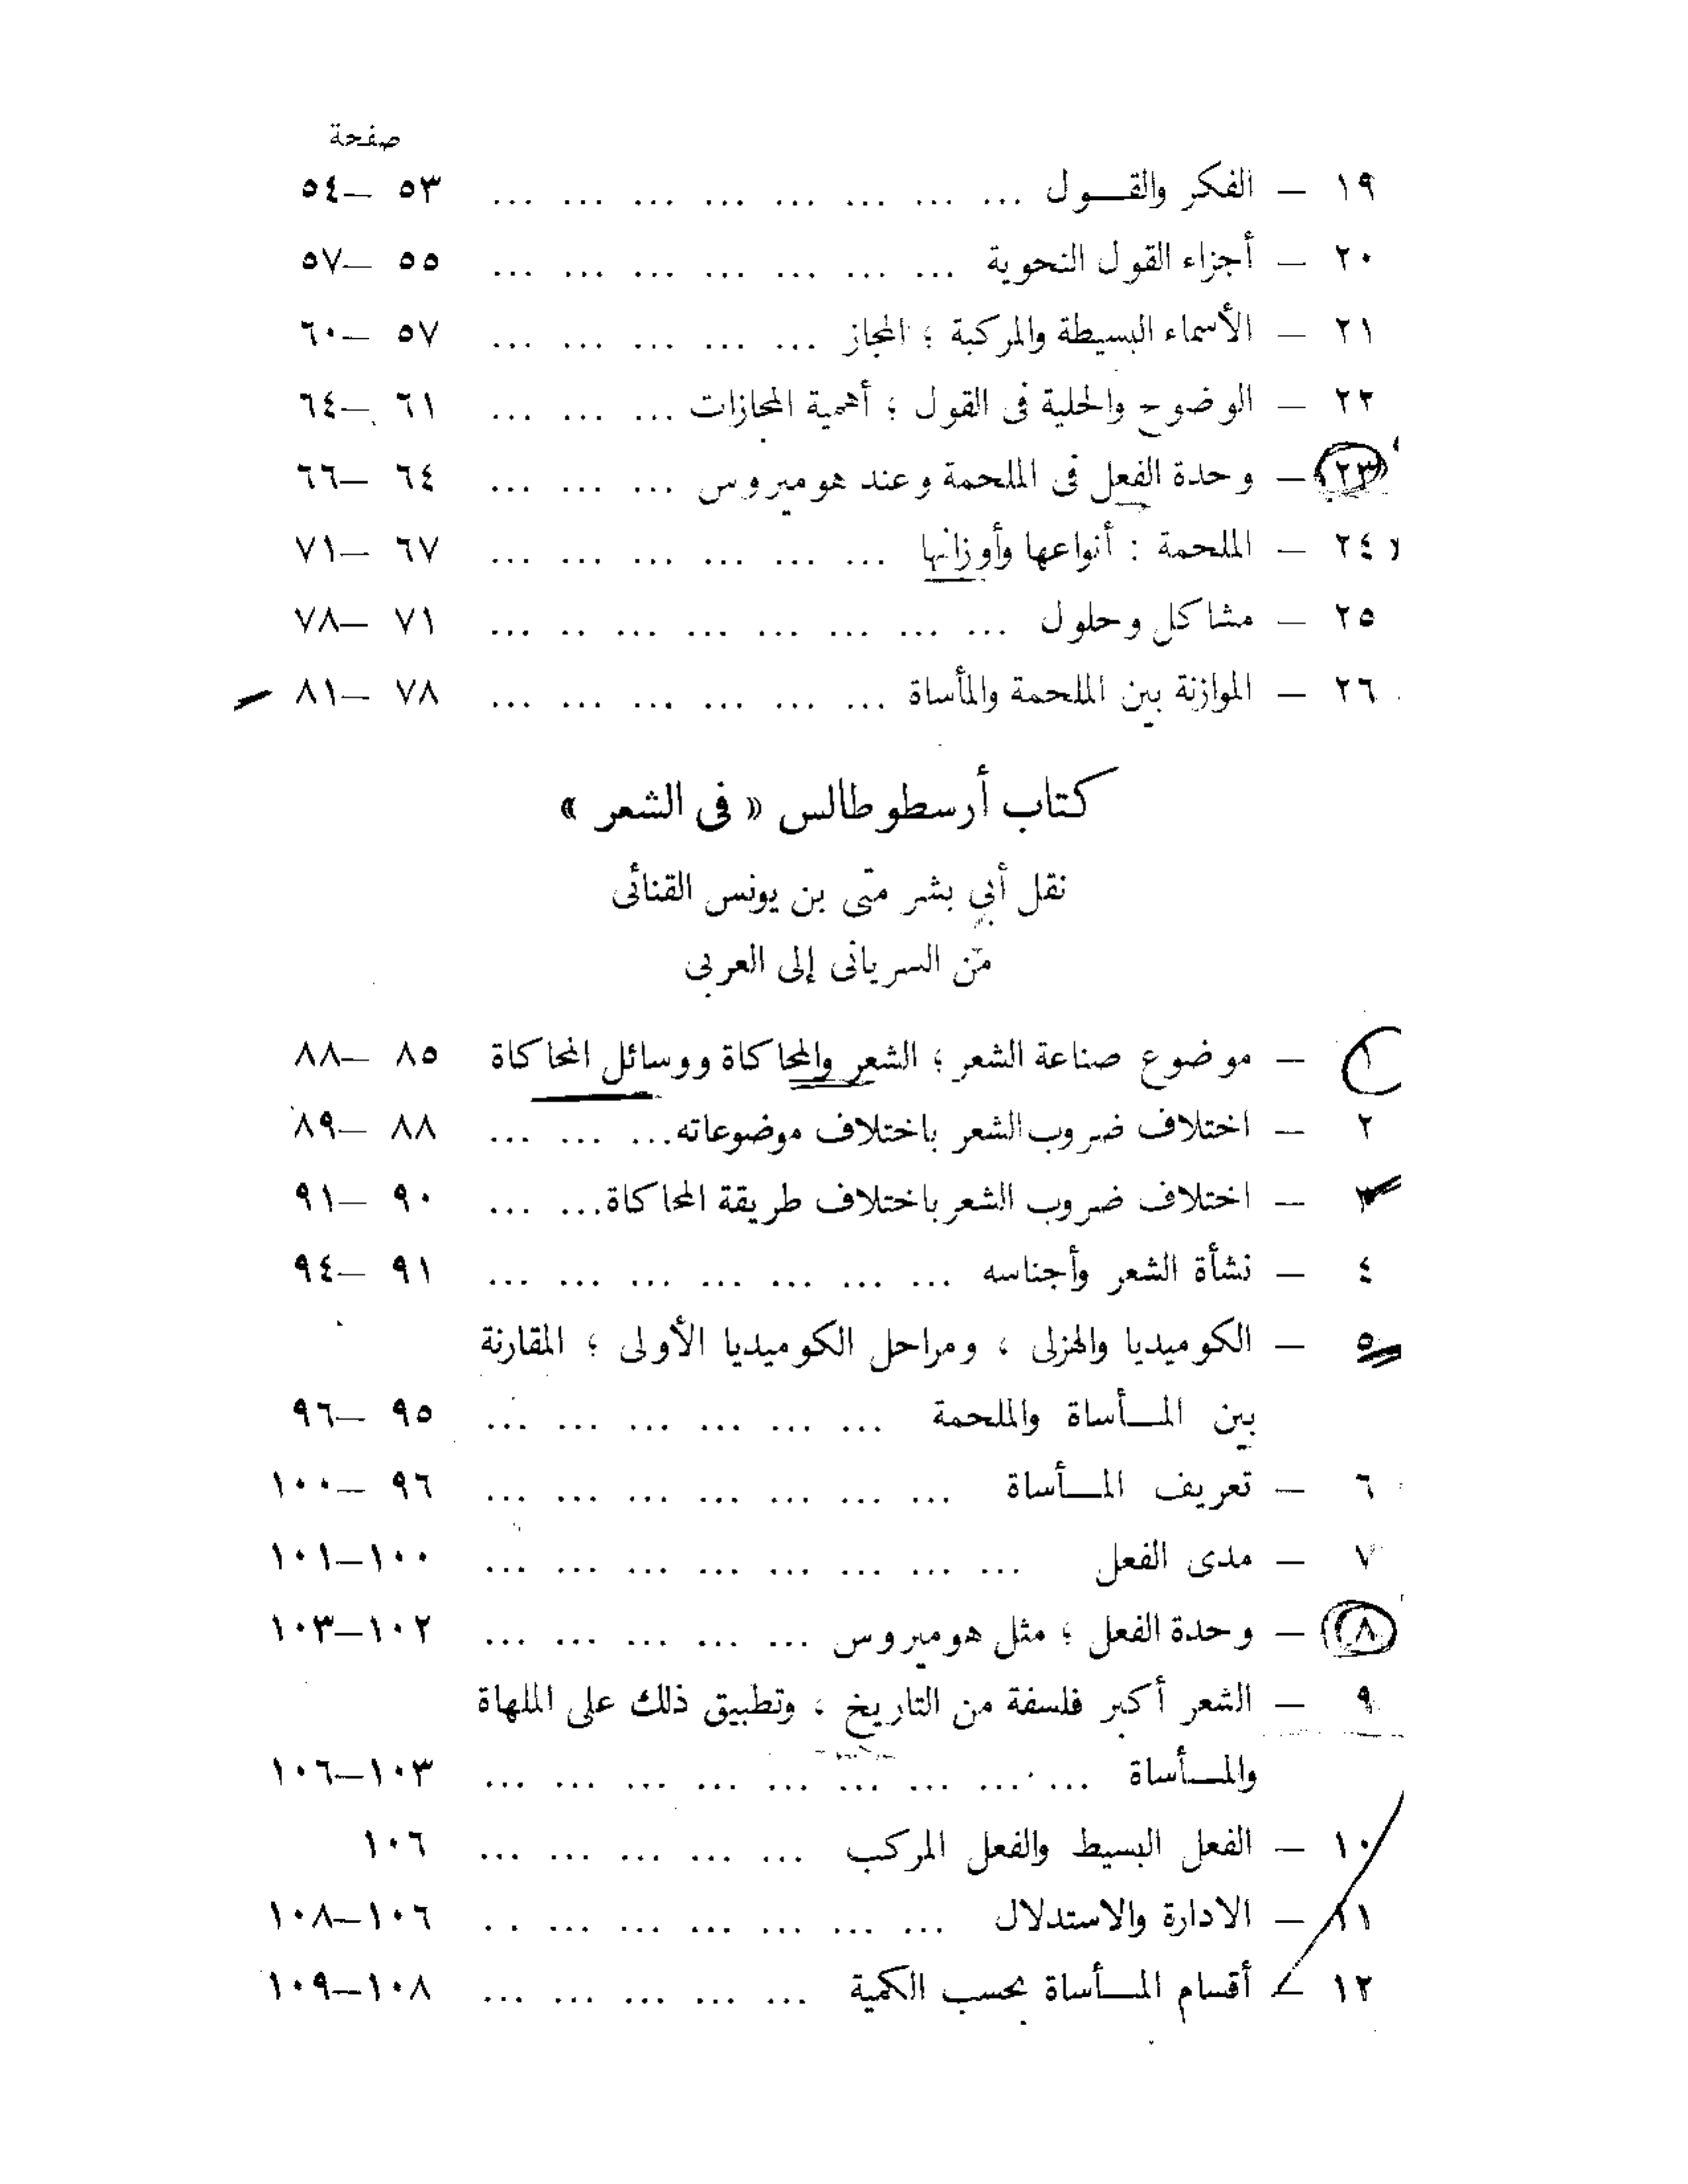 صفحة
١٩ — الفكر والقـــول ... ... ... ... ... ... ... ... ٥٣ — ٥٤
٢٠ — أجزاء القول النحوية ... ... ... ... ... ... ... ٥٥ — ٥٧
٢١ — الأسماء البسيطة والمركبة ؛ المجاز ... ... ... ... ... ٥٧ — ٦٠
٢٢ — الوضوح والحلية فى القول ؛ أهمية المجازات ... ... ... ٦١ — ٦٤
٢٣ — وحدة الفعل فى الملحمة وعند هوميروس ... ... ... ٦٤ — ٦٦
٢٤ — الملحمة : أنواعها وأوزانها ... ... ... ... ... ... ٦٧ — ٧١
٢٥ — مشاكل وحلول ... ... ... ... ... ... .. ... ٧١ — ٧٨
٢٦ — الموازنة بين الملحمة والمأساة ... ... ... ... ... ... ٧٨ — ٨١
كتاب أرسطوطالس « فى الشعر »
نقل أبي بشر متى بن يونس القنائى
من السريانى إلى العربى
١ — موضوع صناعة الشعر ؛ الشعر والمحاكاة ووسائل المحاكاة ٨٥ — ٨٨
٢ — اختلاف ضروب الشعر باختلاف موضوعاته... ... ... ٨٨ — ٨٩
٣ — اختلاف ضروب الشعر باختلاف طريقة المحاكاة... ... ٩٠ — ٩١
٤ — نشأة الشعر وأجناسه ... ... ... ... ... ... ... ٩١ — ٩٤
٥ — الكوميديا والهزلى ، ومراحل الكوميديا الأولى ؛ المقارنة
بين المـــأساة والملحمة ... ... ... ... ... ... ٩٥ — ٩٦
٦ — تعريف المـــأساة ... ... ... ... ... ... ... ٩٦ — ١٠٠
٧ — مدى الفعل ... ... ... ... ... ... ... ... ١٠٠—١٠١
٨ — وحدة الفعل ؛ مثل هوميروس ... ... ... ... ... ١٠٢—١٠٣
٩ — الشعر أكبر فلسفة من التاريخ ، وتطبيق ذلك على الملهاة
والمـــأساة ... ... ... ... ... ... ... ... ... ١٠٣—١٠٦
١٠ — الفعل البسيط والفعل المركب ... ... ... ... ... ١٠٦
١١ — الادارة والاستدلال ... ... ... ... ... ... .. ١٠٦—١٠٨
١٢ — أقسام المـــأساة بحسب الكمية ... ... ... ... ... ١٠٨—١٠٩